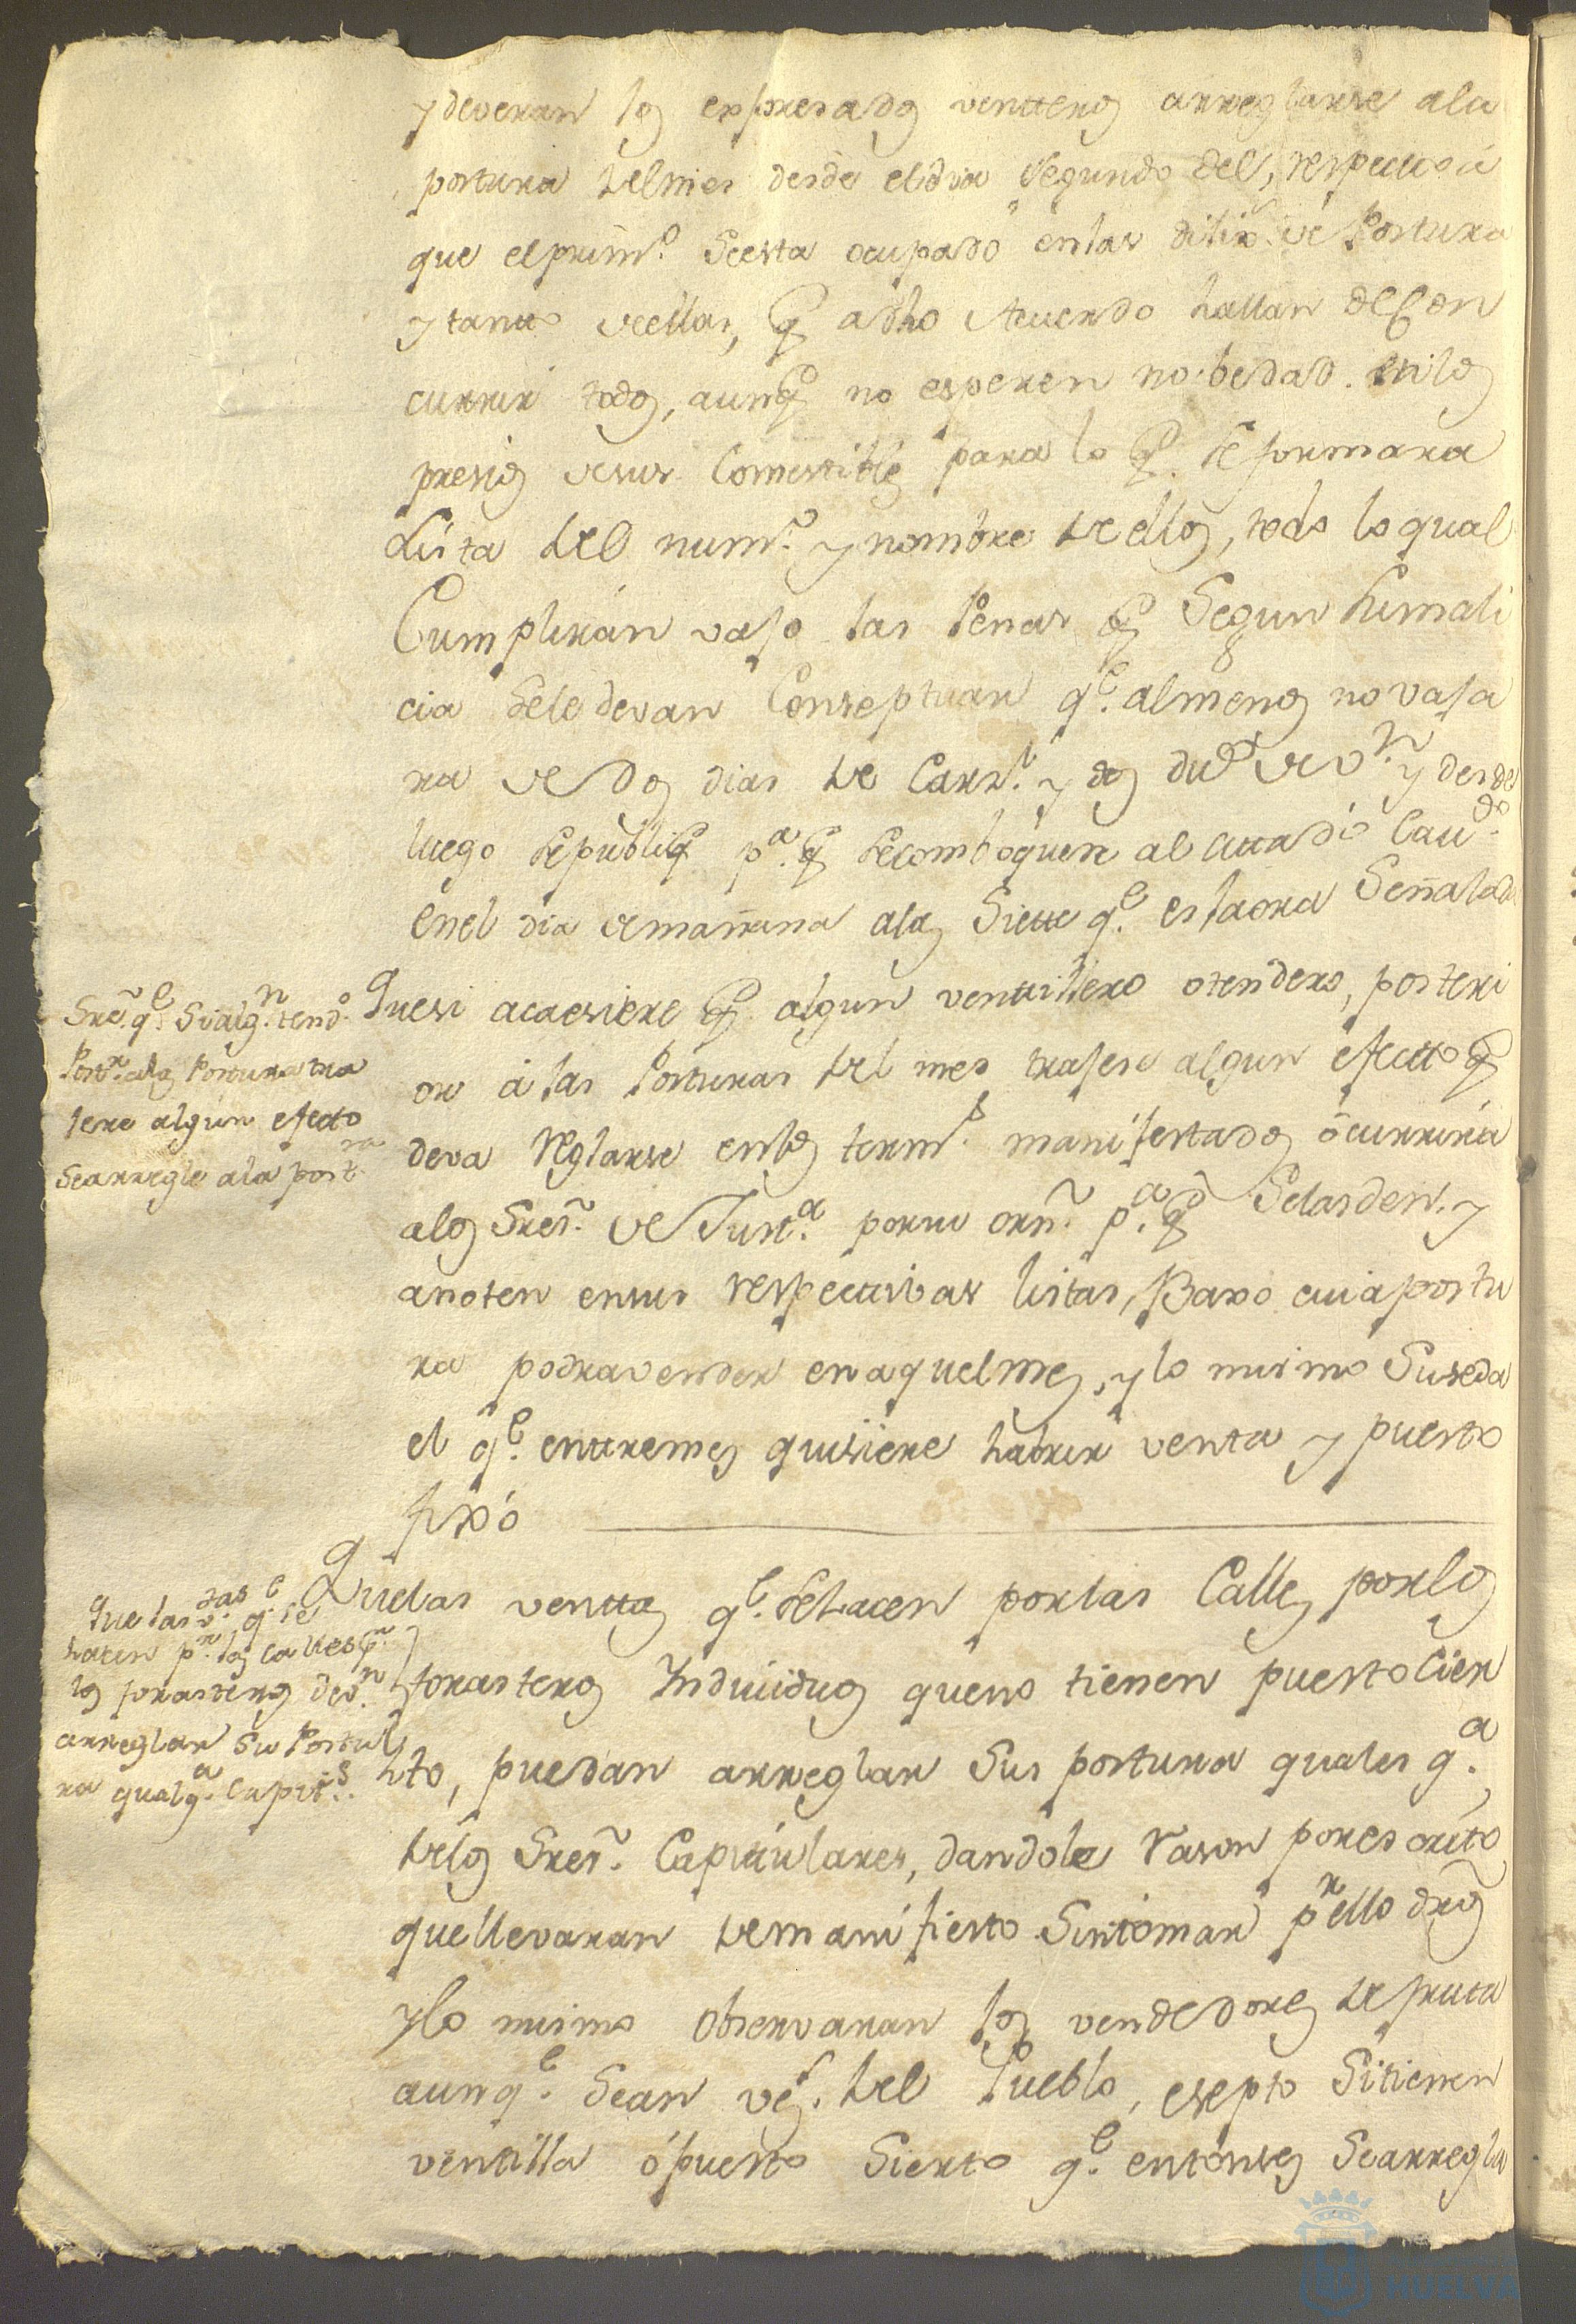 y deveran los expresados ventteros arreglarse ala
postura del mes desde el dia segundo del, respecto a
que el prim.º se esta ocupado en las dilix.s de Postura
y tanto de ellas, q.e a dho Acuerdo hallan de con
currir todos, aunq.e no esperen nobedad en los
presios de sus Comestibles para lo q.e se formara
Lista del num.º y nombre de ellos, todo lo qual
Cumplirán vajo las Penas q.e Segun su mali
cia se le devan Conseptuar q.e al menos no vaja
ra de dos dias de Cars.l y dos du.s de v.n y desde
luego se publiq.e p.a q.e se comboquen al cittado Cav.do
en el dia de mañana alas Siette q.e es la ora Señalada
Sre. q.e Si alg.n tend.º
Post.r alas Posturas tra
jere algun efecto
se arregle ala post.ra
Que si acaesiere q.e algun venttillero o tendero, posteri
or a las Posturas del mes trajese algun efectto q.e
deva reglarse en los term.s manifestados ocurrira
alos Sres. de Just.a por su orn. p.a q.e Se las den y
anoten en sus respecttibas listas, Baxo cuia postu
ra podra vender en aquel mes, y lo mismo Suseda
el q.e entre mes quisiere habrir venta y puesto
fixo
Que las v.tas q.e se
hacen p.r las calles p.r
los forasteros dev.n
arreglar su Postu
ra qualq.a Capit.s
Que las venttas q.e se hacen por las Calles por los
forasteros Individuos que no tienen puesto cier
to, puedan arreglar sus postura quales q.a
de los Sres. Capitulares, dandole rason por escrito
que llevaran de manifiesto Sin tomar p.r ello dros
y lo mismo observaran los vendedores de fruta
aunq.e Sean ves. del Pueblo, esepto Si tienen
ventilla ó puesto Sierto q.e entonses Se arregla
HUELVA